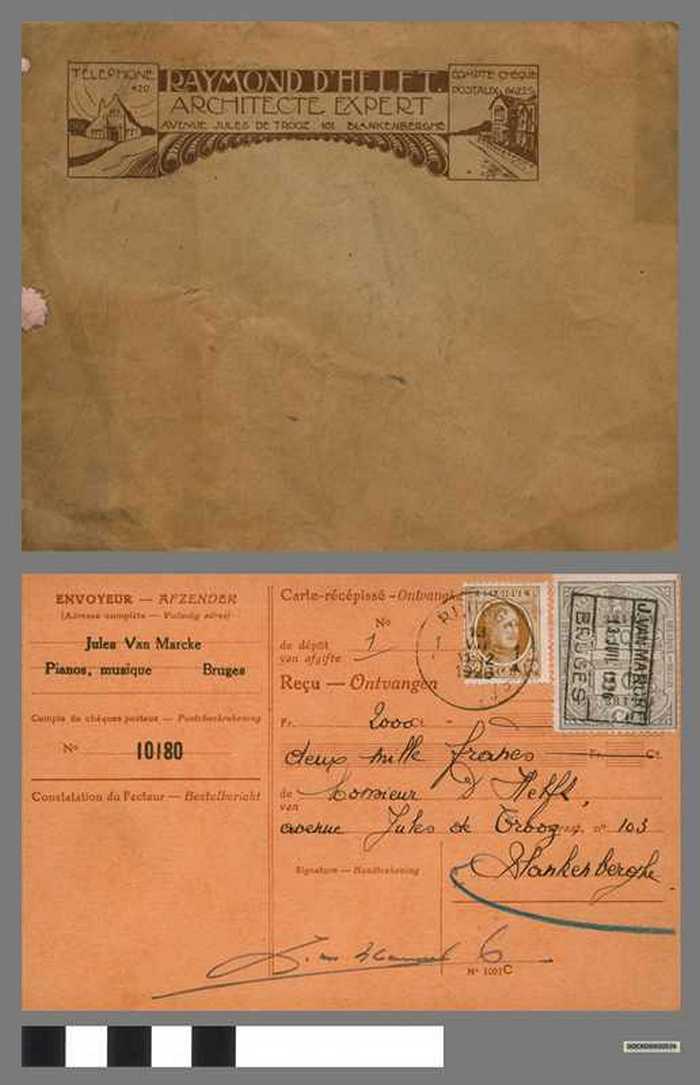 TÉLÉPHONE
420
RAYMOND D'HELFT.
ARCHITECTE EXPERT
AVENUE JULES DE TROOZ 101 BLANKENBERGHE
COMPTE CHÈQUE
POSTAUX
ENVOYEUR — AFZENDER
(Adresse complète — Volledig adres)
Jules Van Marcke
Pianos, musique Bruges
Compte de chèques postaux — Postcheckrekening
No 10180
Constatation du Facteur — Bestelbericht
Carte-récépissé - Ontvangk
No
de dépôt 1
van afgifte
Reçu — Ontvangen
Fr. 2000
deux mille francs
Fr. Ct.
de Monsieur D'Helft,
van
avenue Jules de Trooz no 103
Blankenberghe
Signature — Handteekening
6
No 1001C
J. VAN MARCKE
13 JUIL 1926
BRUGES